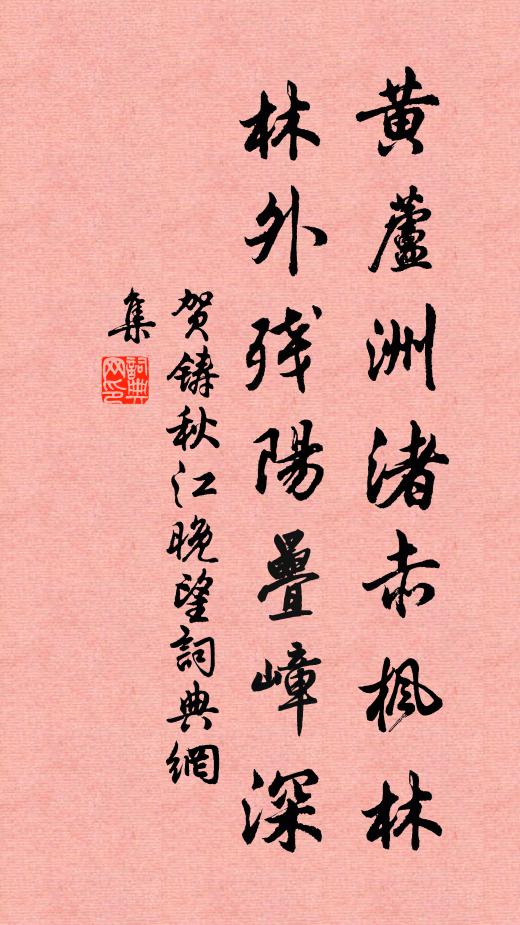 黄蘆洲渚赤楓林
林外残陽疊嶂深
贺鑄秋江晚望詞典網
集
詞典
网印